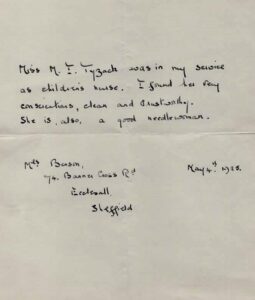 Miss M. I. Tyzack was in my service
as children's nurse. I found her very
conscientious, clean and trustworthy.
She is, also, a good needlewoman.
Mrs
74. Banner Cross Rd
Ecclesall,
Sheffield
May 4th